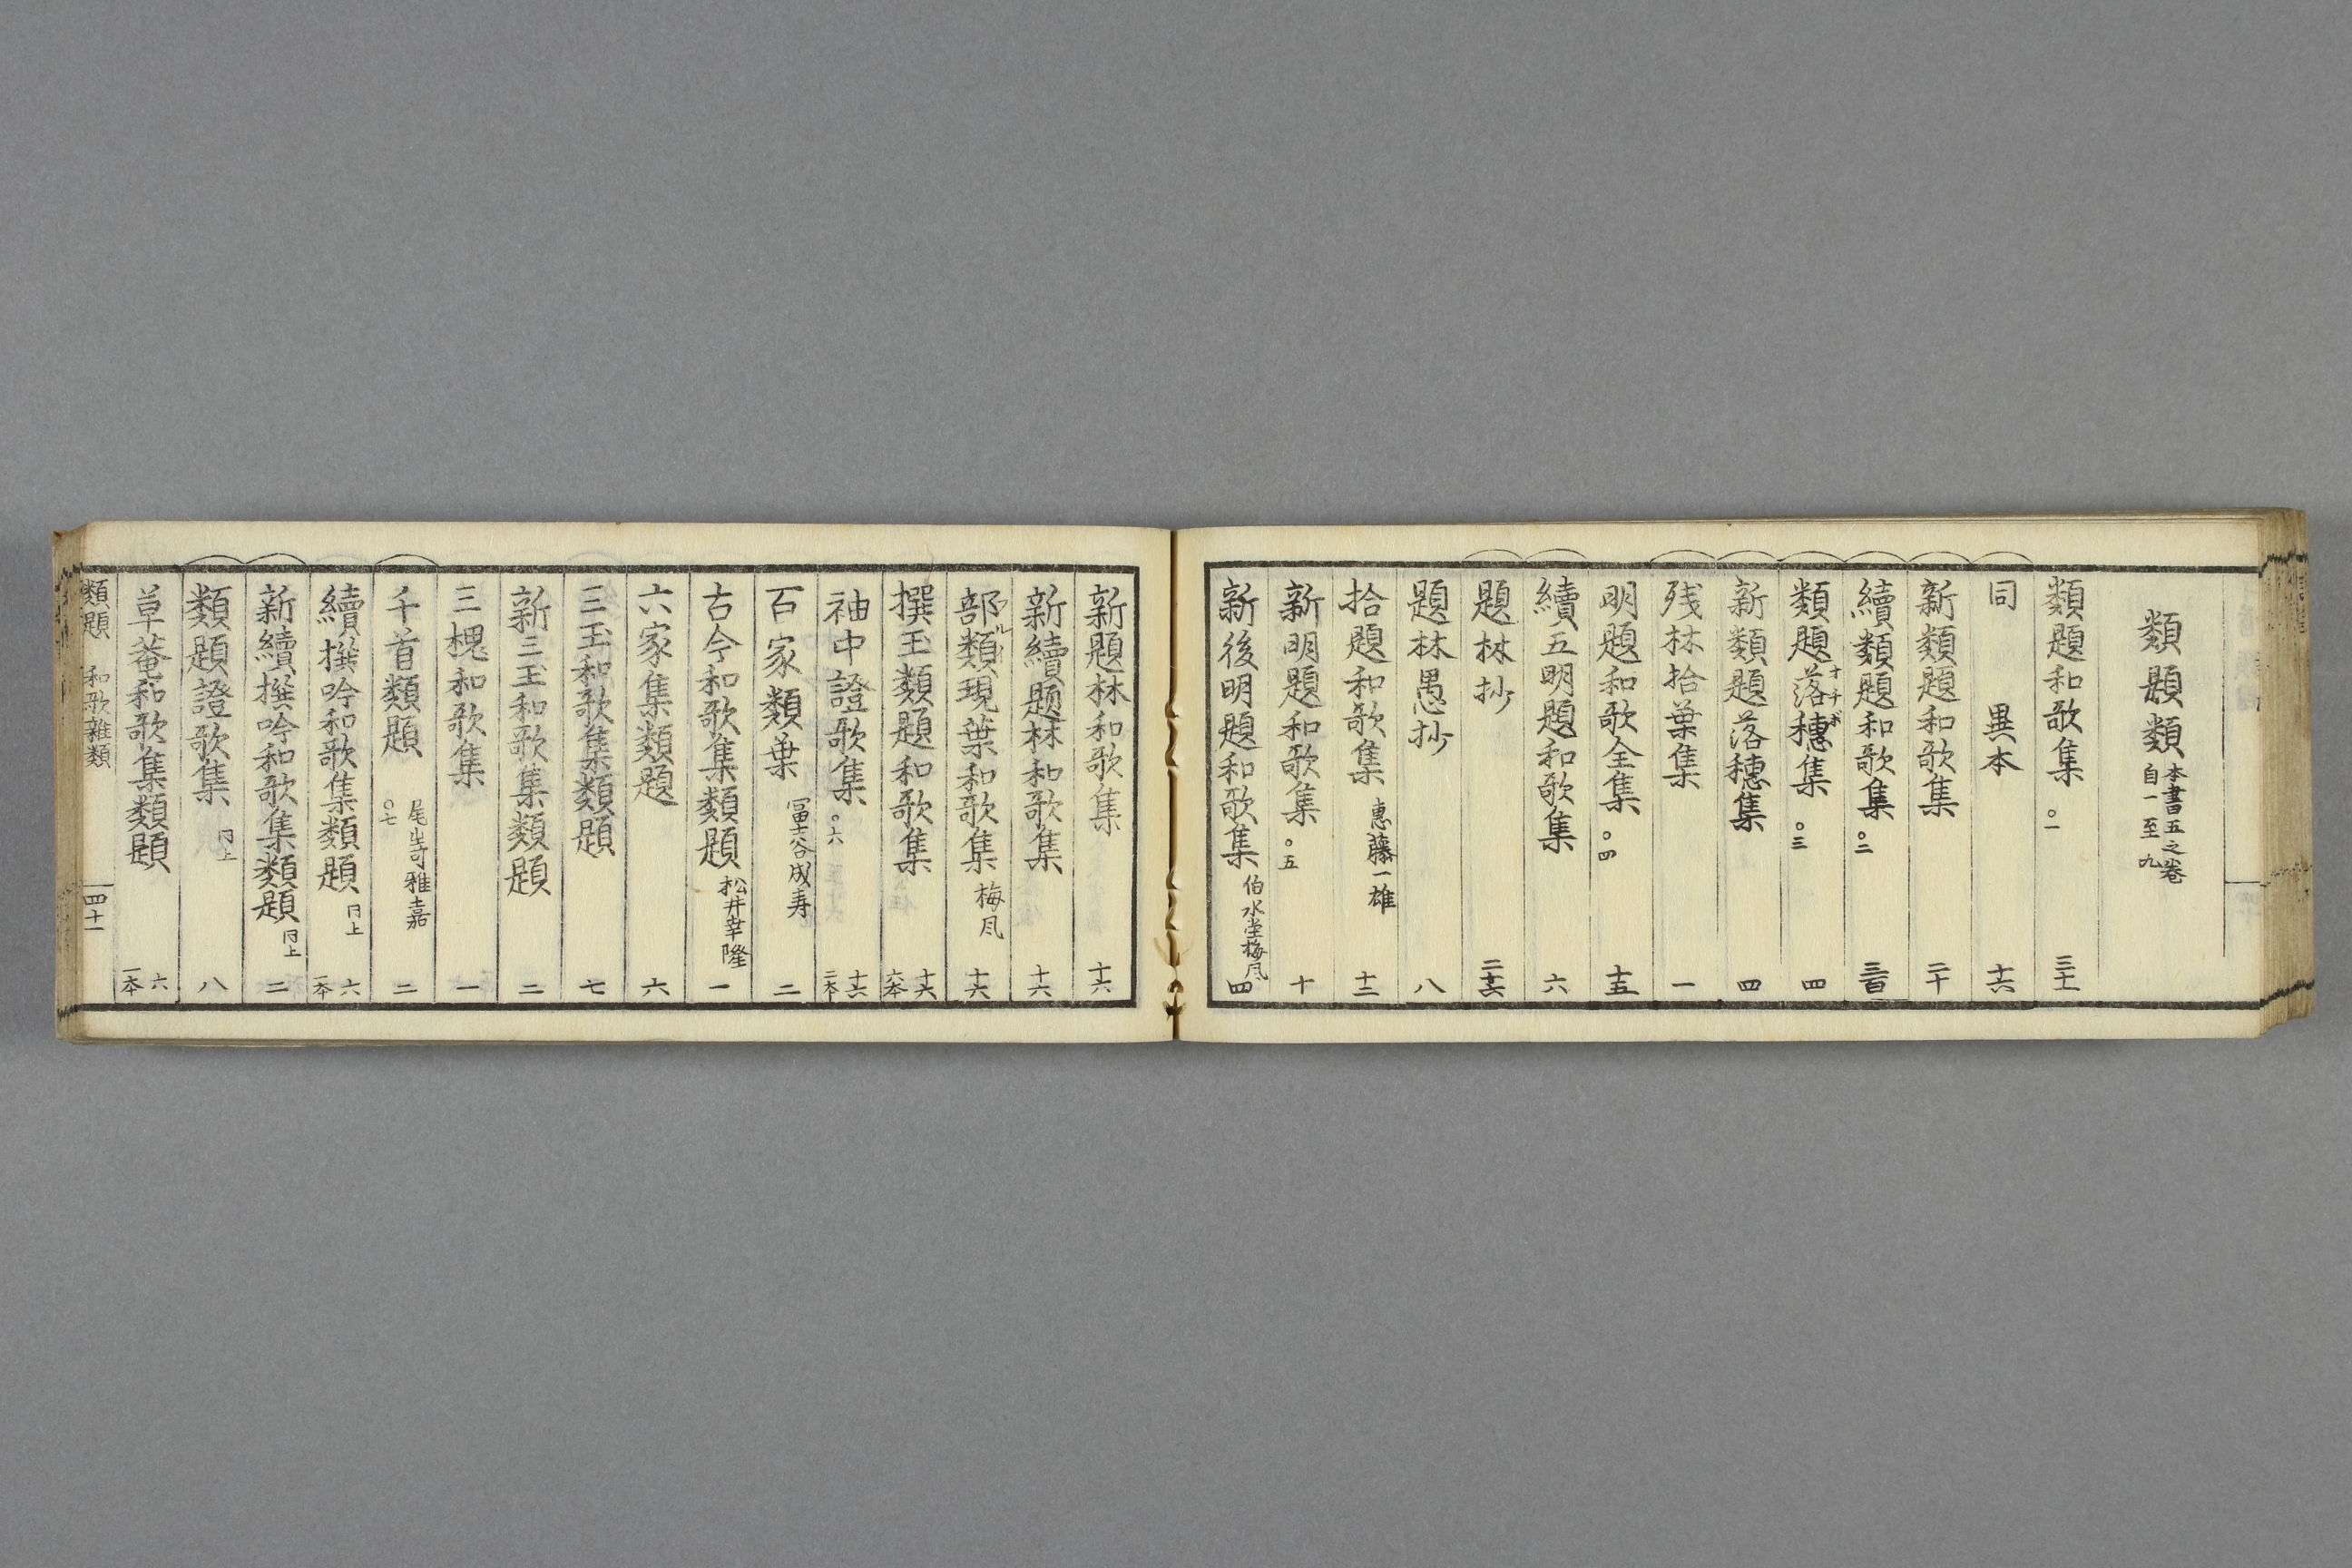 類題類 本書五之巻
自一至九
類題和歌集 ○一 三十一
同 異本 十六
新類題和歌集 二十
續類題和歌集 ○二 三百
類題落穂集 オチボ ○三 四
新類題落穂集 四
残林拾葉集 一
明題和歌全集 ○四 十五
續五明題和歌集 六
題林抄 二十六
題林愚抄 八
拾題和歌集 惠藤一雄 十二
新明題和歌集 ○五 十
新後明題和歌集 伯水堂梅風 四
新題林和歌集 十六
新續題林和歌集 十六
部類現葉和歌集 梅風 十六
撰玉類題和歌集 十六 六本
袖中證歌集 ○六 十六 二本
百家類葉 冨士谷成寿 二
古今和歌集類題 松井幸隆 一
六家集類題 六
三玉和歌集類題 七
新三玉和歌集類題 二
三槐和歌集 一
千首類題 尾崎雅嘉 ○七 二
續撰吟和歌集類題 同上 六 一本
新續撰吟和歌集類題 同上 二
類題證歌集 同上 八
草菴和歌集類題 六 一本
類題 和歌雜類 四十一